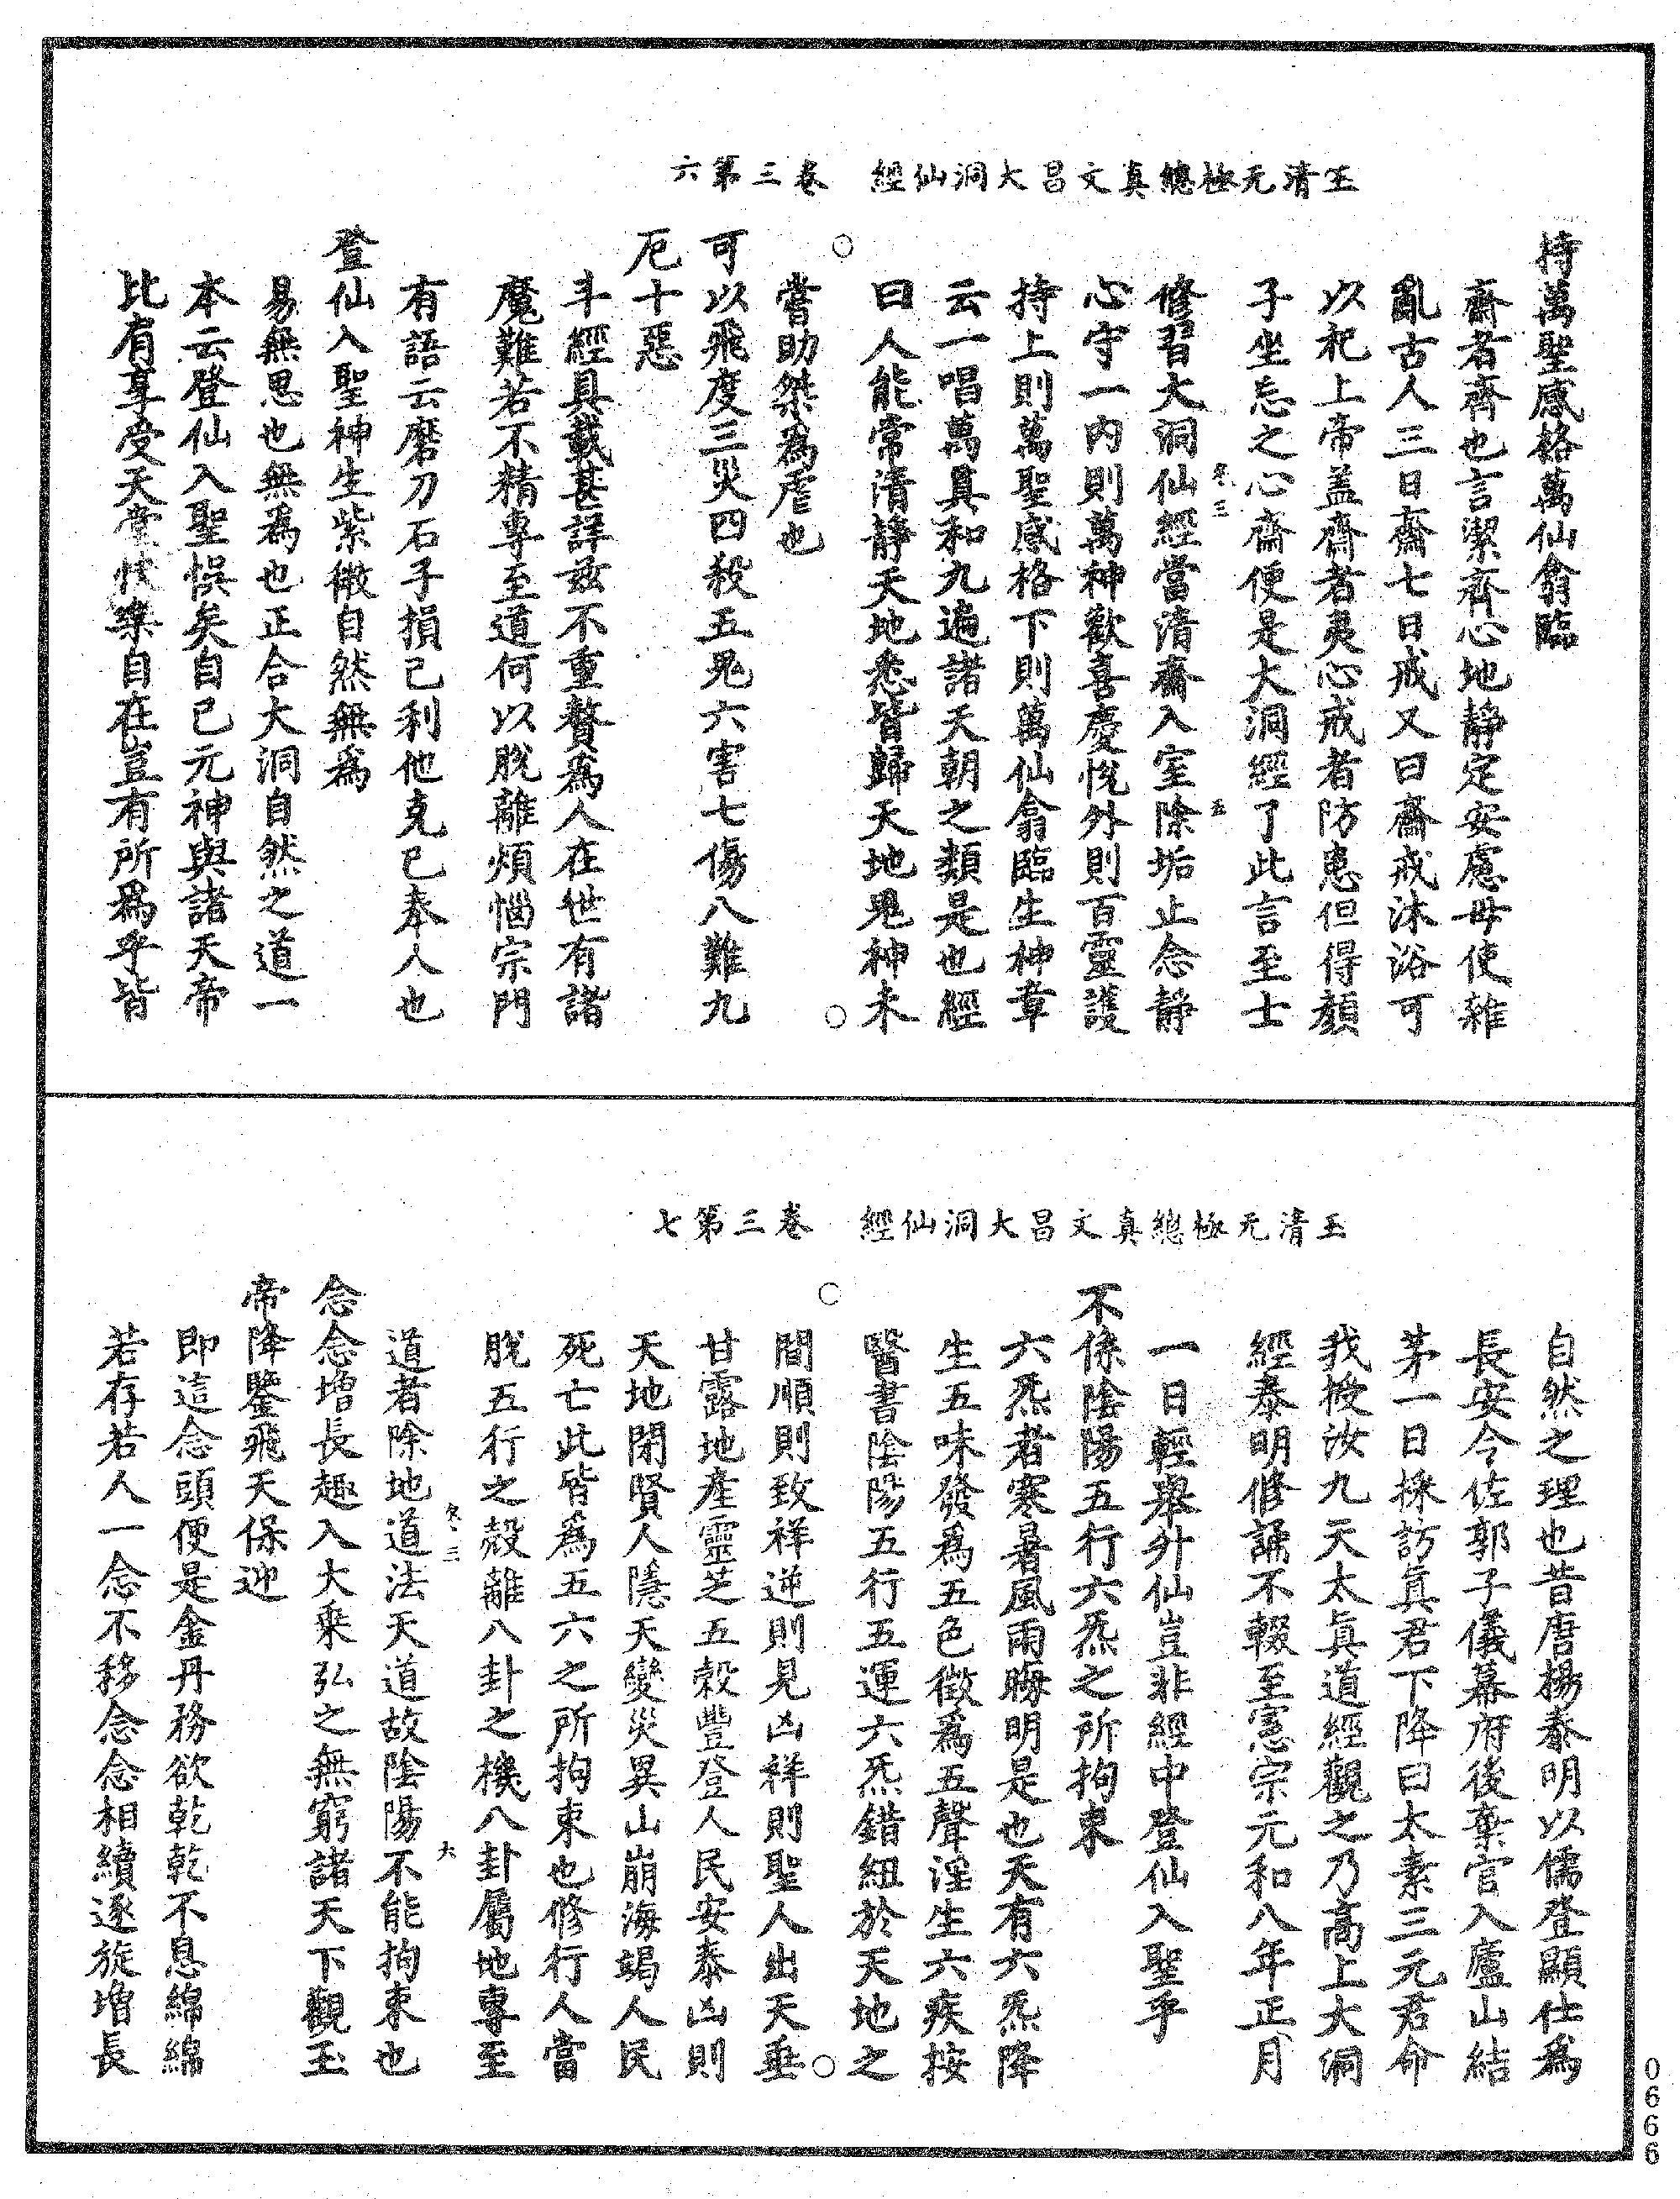 玉清元極總真文昌大洞仙經　卷三第六
持萬聖感格萬仙翕臨
齋者齊也言潔齊心地靜定安慮毋使雜
亂古人三日齋七日戒又曰齋戒沐浴可
以祀上帝盖齋者夷心戒者防患但得顏
子坐忘之心齋便是大洞經了此言至士
修習大洞仙經當清齋入室除垢止念靜
心守一內則萬神歡喜慶悅外則百靈護
持上則萬聖感格下則萬仙翕臨生神章
云一唱萬真和九遍諸天朝之類是也經
曰人能常清靜天地悉皆歸天地鬼神未
嘗助桀為虐也
可以飛度三災四殺五鬼六害七傷八難九
厄十惡
斗經具載甚詳茲不重贅為人在世有諸
魔難若不精專至道何以脫離煩惱宗門
有語云磨刀石子損己利他克己奉人也
登仙入聖神生紫微自然無為
易無思也無為也正合大洞自然之道一
本云登仙入聖悞矣自己元神與諸天帝
比肩享受天堂快樂自在豈有所為乎皆
玉清无極總真文昌大洞仙經　卷三第七
自然之理也昔唐楊泰明以儒登顯仕為
長安令佐郭子儀幕府後棄官入廬山結
茅一日採訪真君下降曰太素三元君命
我授汝九天太真道經觀之乃高上大洞
經泰明修誦不輟至憲宗元和八年正月
一日輕舉升仙豈非經中登仙入聖乎
不係陰陽五行六炁之所拘束
六炁者寒暑風雨晦明是也天有六炁降
生五味發為五色徵為五聲淫生六疾按
醫書陰陽五行五運六炁錯紐於天地之
間順則致祥逆則見凶祥則聖人出天垂
甘露地產靈芝五穀豐登人民安泰凶則
天地閉賢人隱天變災異山崩海竭人民
死亡此皆為五六之所拘束也修行人當
脫五行之殼離八卦之機八卦屬地專至
道者除地道法天道故陰陽不能拘束也
念念增長趣入大乘弘之無窮諸天下觀玉
帝降鑒飛天保迎
即這念頭便是金丹務欲乾乾不息綿綿
若存若人一念不移念念相續逐旋增長
0666